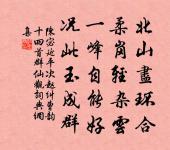 北山盡環合
柔崗雜雲
一峰自能好
況此玉成群
陳宓延平次趙糾曹韻
十四首群仙觀詞典網
集